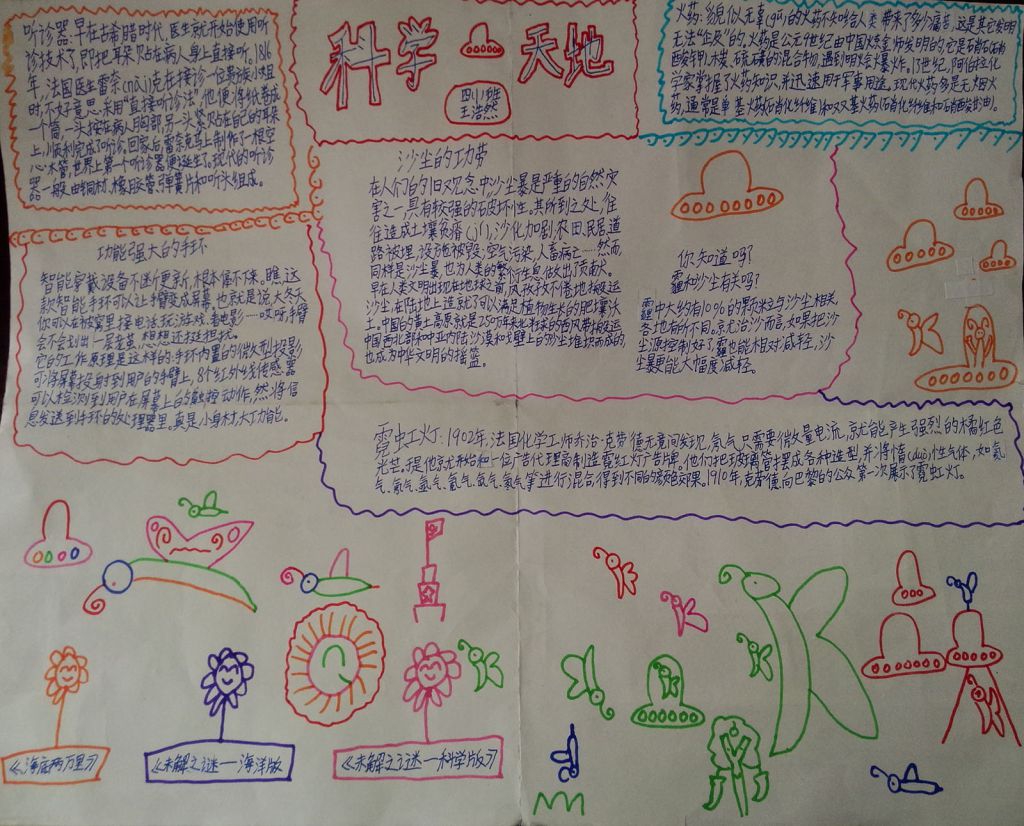 听诊器:早在古希腊时代,医生就开始使用听
诊技术了,即把耳朵贴在病人身上直接听。1816
年,法国医生雷奈(nài)克在接诊一位贵族小姐
时,不好意思采用“直接听诊法”,他便将纸卷成
一个筒,一头按在病人胸部,另一头紧贴在自己的耳朵
上,顺利完成了听诊。回家后,雷奈克马上制作了一根空
心木管,世界上第一个听诊器便诞生了。现代的听诊
器一般由铜材、橡胶管、弹簧片和听头组成。
科学天地
四小4班
王浩然
火药:貌似无辜(gū)的火药不知给人类带来了多少痛苦,这是其它发明
无法“企及”的。火药是公元9世纪由中国炼金师发明的,它是硝石(硝
酸钾)、木炭、硫磺的混合物,遇到明火会爆炸。13世纪,阿伯拉化
学家掌握了火药知识,并迅速用于军事用途。现代火药多是无烟火
药,通常是单基火药(硝化纤维)和双基火药(硝化纤维和硝酸甘油)。
功能强大的手环
智能穿戴设备不断更新,根本停不下来。瞧,这
款智能手环可以让手臂变成屏幕,也就是说,大冬天
你可以在被窝里接电话、玩游戏、看电影……哎呀手臂
会不会划出一层茧茧,想想还挺担扰。
它的工作原理是这样的:手环内置的微型投影
可将屏幕投射到用户的手臂上,8个红外线传感器
可以检测到用户在屏幕上的触控动作,然将信
息发送到手环的处理器里。真是小身材,大功能。
沙尘的功带
在人们的旧观念中,沙尘暴是严重的自然灾
害之一,具有较强的破坏性。其所到之处,往
往造成土壤贫瘠(jí)、沙化加剧、农田、民居、道
路被埋,设施被毁;空气污染,人畜病亡……然而,
同样是沙尘暴,也为人类的繁衍生息做出了贡献。
早在人类文明出现在地球之前,风孜孜不倦地搬运
沙尘,在陆地上造就了可以满足植物生长的肥壤沃
土。中国的黄土高原就是250万年来北半球的西风带搬运
中国西北部和中亚内陆沙漠和戈壁上的沙尘堆垻而成的,
也成为中华文明的摇篮。
你知道吗?
霾和沙尘有关吗?
霾中大约有10%的颗粒与沙尘相关,
各地有所不同。京尤冶沙而言,如果把沙
尘源控制好了,霾也能相对减轻,沙
暴更能大幅度减轻。
霓虹灯:1902年,法国化学工师乔治·克劳德无意间发现,氖气只需要微量电流,就能产生强烈的橘红色
光芒,于是他就开始和一位广告代理商制造霓虹灯广告牌。他们把玻璃管摆成各种造型,并将惰(duò)性气体,如氦
气、氖气、氩气、氪气、氙气、氡气等进行混合得到不同的颜色效果。1910年,克劳德向巴黎的公众第一次展示了霓虹灯。
《海底两万里》
《未解之谜—海洋版》
《未解之谜—科学版》